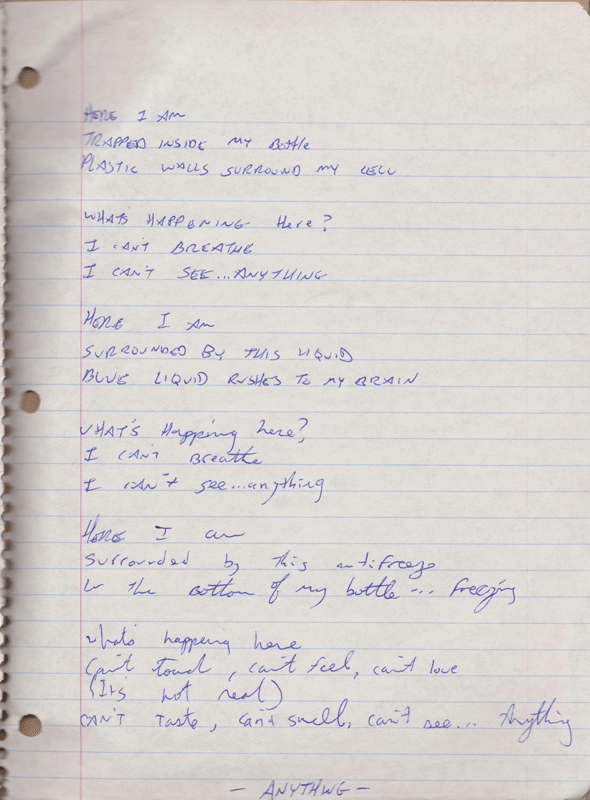 HERE I AM
TRAPPED INSIDE MY BOttle
PLASTIC WALLS SURROUND MY CELL
WHATS HAPPENING Here?
I CAN'T BREATHE
I CAN'T SEE...ANYTHING
HERE I AM
SURROUNDED BY THIS LIQUID
BLUE LIQUID RUSHES TO MY BRAIN
WHAT'S Happing here?
I CAN'T Breathe
I CAN'T see...anything
HERE I am
Surrounded by this antifreeze
In the Bottom of my bottle... freezing
whats happening here
Can't touch, can't feel, can't love
(It's not real)
CAN'T Taste, can't smell, can't see... Anything
- ANYTHING -